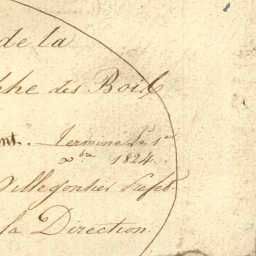 de la
che des Bois
nt. Terminé le 1er
8bre 1824.
Villegontier Préfet
la Direction